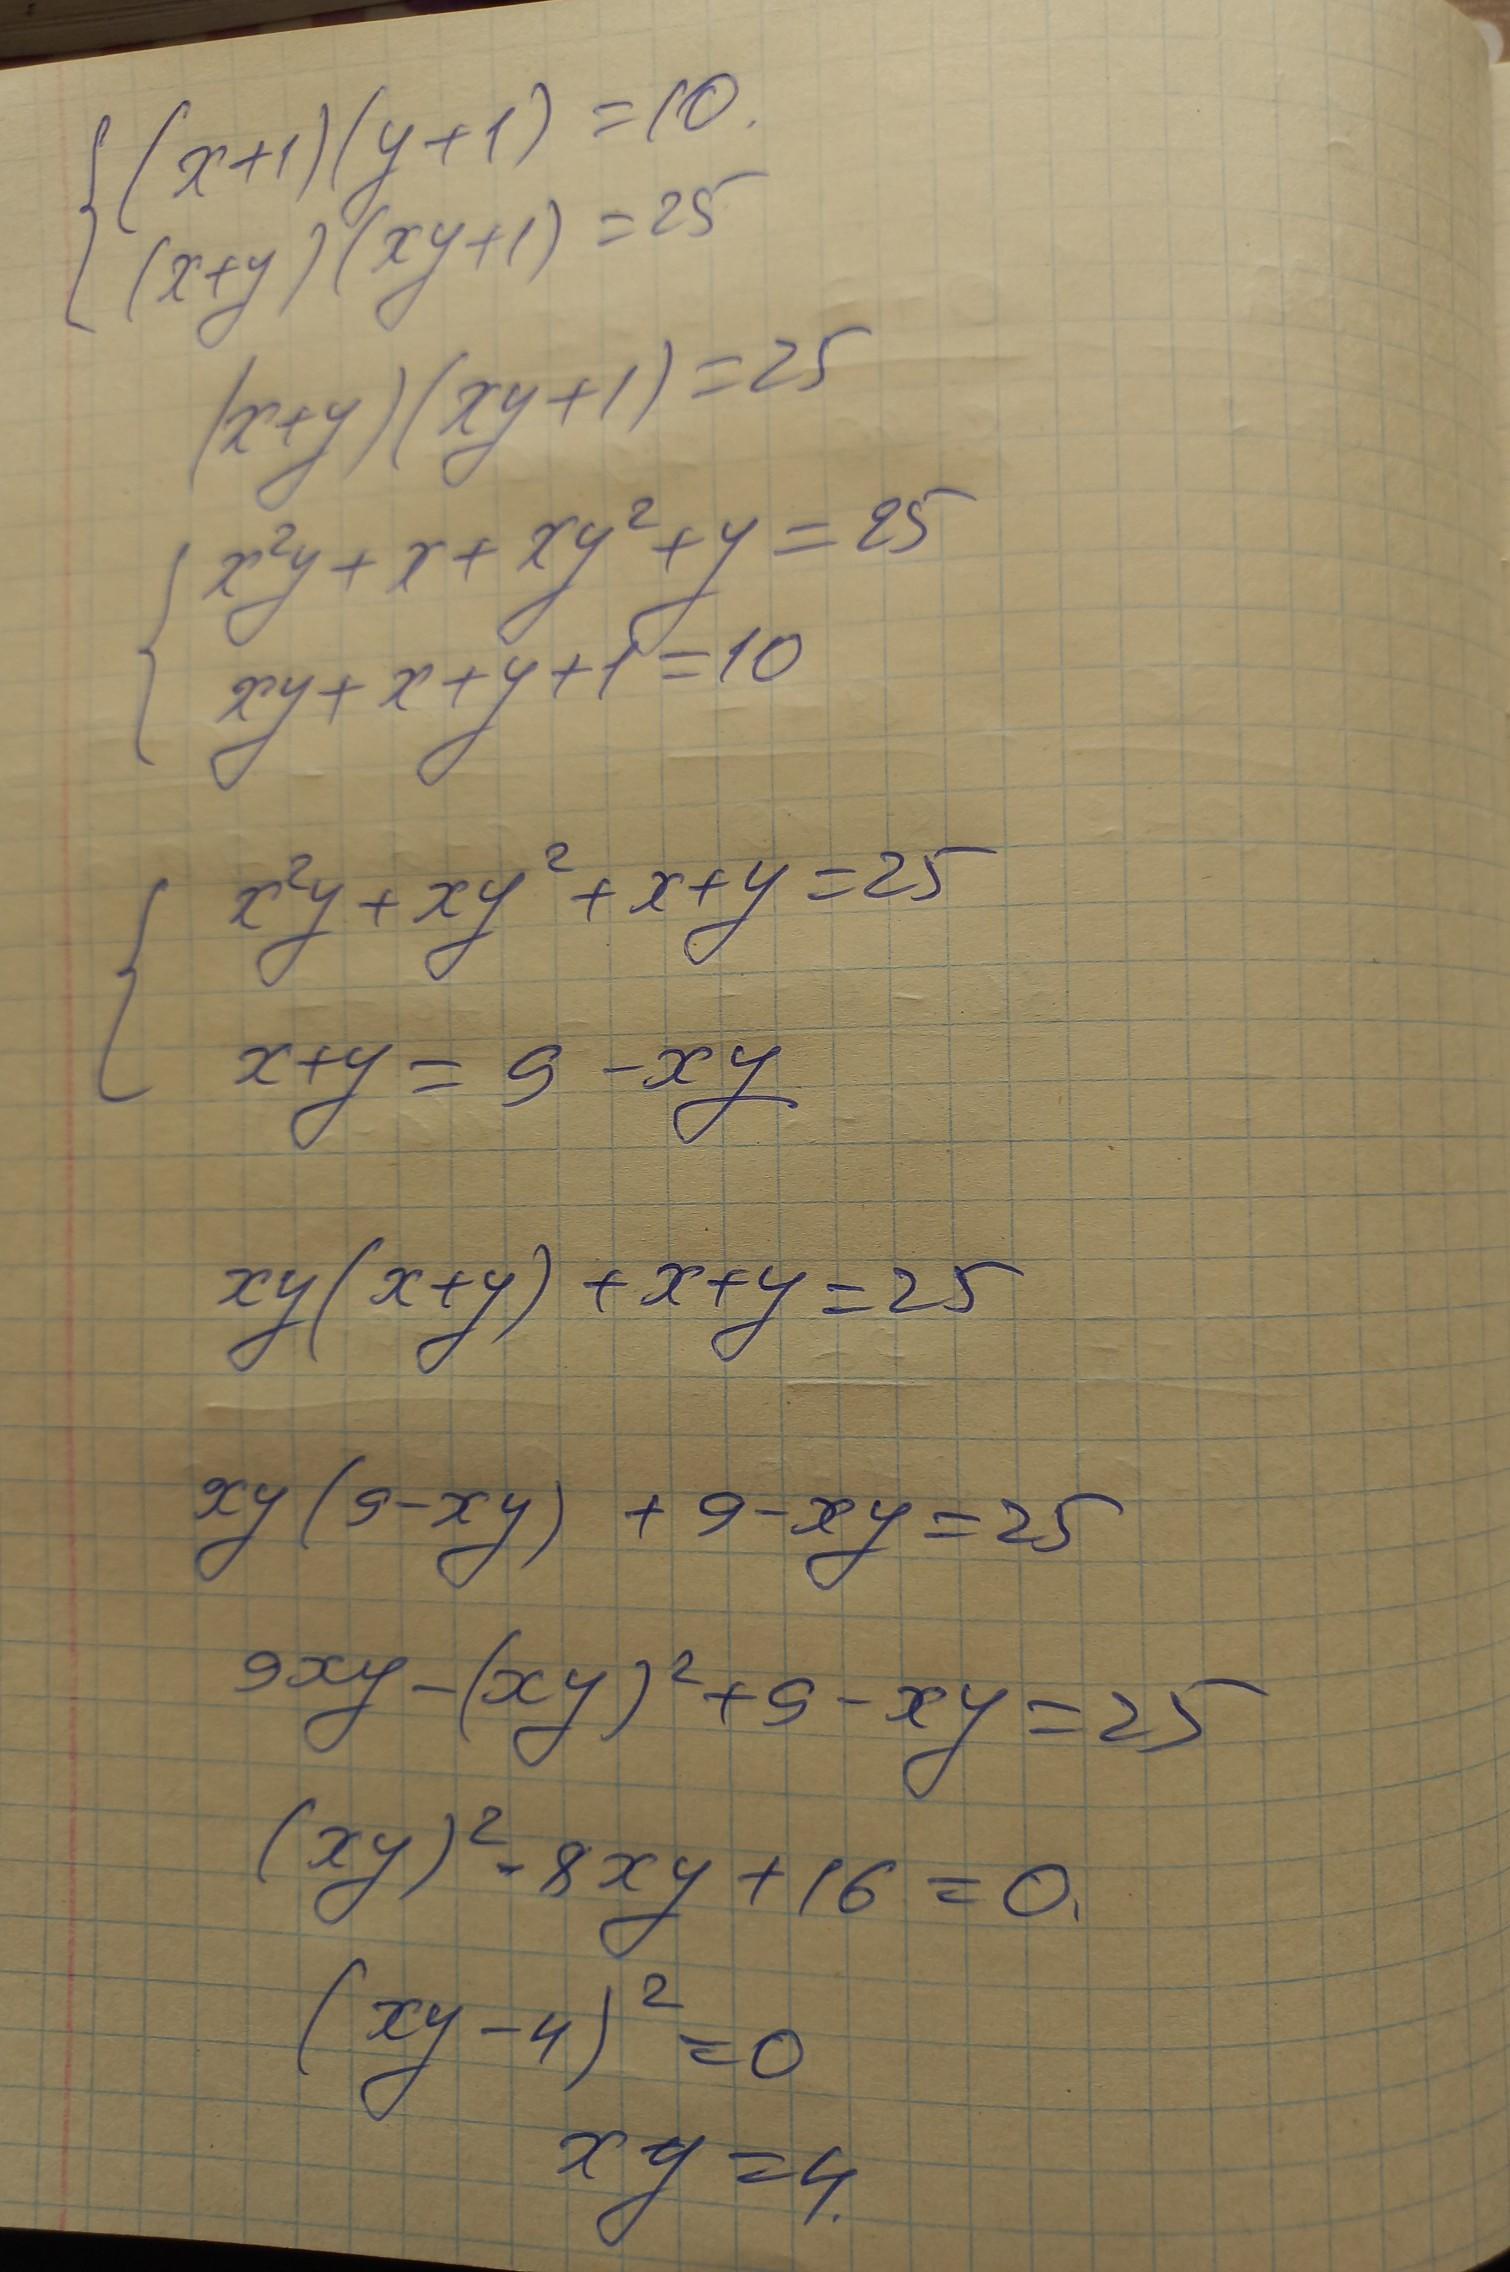 (x+1)(y+1) =10.
(x+y)(xy+1) =25
(x+y)(xy+1)=25
x²y+x+xy²+y=25
xy+x+y+1=10
x²y+xy²+x+y=25
x+y=9-xy
xy(x+y)+x+y=25
xy(9-xy)+9-xy=25
9xy-(xy)²+9-xy=25
(xy)²-8xy+16=0.
(xy-4)²=0
xy=4.